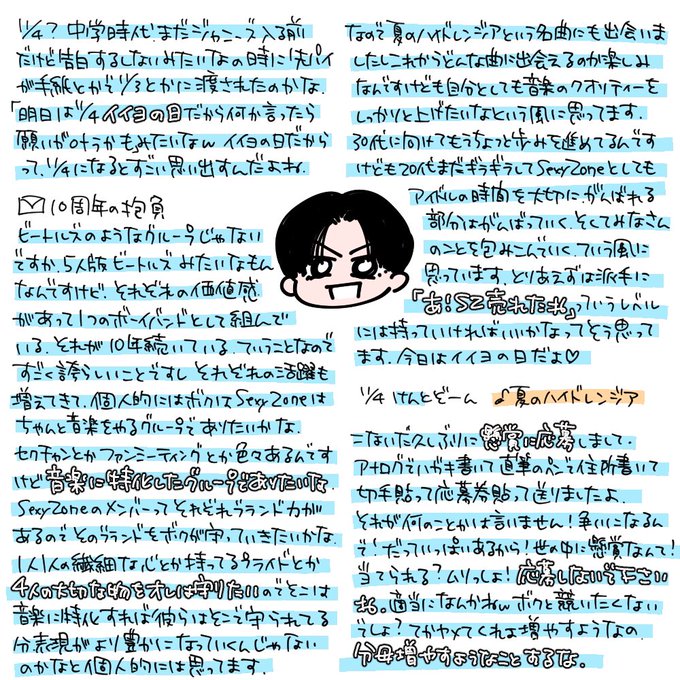 11/4? 中学時代、まだジャニーズ入る前
だけど告白するしないみたいなの時に1先パイ
が手紙とかで11/3とかに渡されたのかな。
「明日は11/4イイヨの日だから何か言ったら
願いが叶うかも」みたいなwイイヨの日だから
って、11/4になるとすごい思い出すんだよね。
10周年の抱負
ビートルズのようなグループじゃない
ですか、5人版ビートルズみたいなもん
なんですけど、それぞれの価値感
があって1つのボーイバンドとして組んで
いる、それが10年続いている、ていうことなので
すごく誇らしいことですし それぞれの活躍も
増えてきて、個人的にはボクはSexyZoneは
ちゃんと音楽をやるグループでありたいかな。
セクチャンとかファンミーティングとか色々あるんです
けど音楽に特化したグループでありたいな。
SexyZoneのメンバーってそれぞれブランド力が
あるのでそのブランドもボクが守っていきたいかな。
1人1人の繊細な心とか持ってるプライドとか
4人の大切な物をオレは守りたいのでそこは
音楽に特化すれば彼らはそこで守られてる
分表現がより豊かになっていくんじゃない
のかなと個人的には思ってます。
なので夏のハイドレンジアという名曲にも出会いま
したしこれからどんな曲に出会えるのか楽しみ
なんですけども自分としても音楽のクオリティーを
しっかりと上げたいなという風に思ってます。
30代に向けてもうちょっと歩みを進めてるんです
けども20代まだギラギラしてSexyZoneとしても
アイドルの時間を大切に、がんばれる
部分はがんばっていく、そしてみなさん
のことを包みこんでいく、ていう風に
思っています、とりあえずは派手に
「あ!SZ売れたね」っていうレベル
には持っていければいいかなってそう思って
ます、今日はイイヨの日だよ♡
11/4 けんとぞーん ♪夏のハイドレンジア
こないだ久しぶりに懸賞に応募しまして。
アナログでハガキ書いて直筆のペンで住所書いて
切手貼って応募券貼って送りましたよ。
それが何のことかは言いません!争いになるん
で!だっていっぱいあるから!世の中に懸賞なんて!
当てられる?ムリっしょ!応募しないで下さい
ね。適当になんかねwボクと競いたくない
でしょ?てかヤメてくれよ増やすようなの、
分母増やすようなことするな。